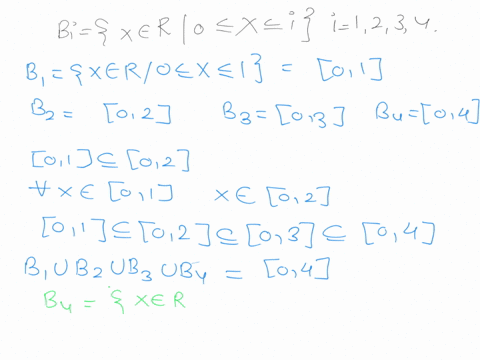 Bi = { x ∈ R / 0 ≤ x ≤ i } i = 1, 2, 3, 4.
B₁ = { x ∈ R / 0 ≤ x ≤ 1 } = [0, 1]
B₂ = [0, 2] B₃ = [0, 3] B₄ = [0, 4]
[0, 1] ⊆ [0, 2]
∀ x ∈ [0, 1] x ∈ [0, 2]
[0, 1] ⊆ [0, 2] ⊆ [0, 3] ⊆ [0, 4]
B₁ ∪ B₂ ∪ B₃ ∪ B₄ = [0, 4]
B₄ = { x ∈ R